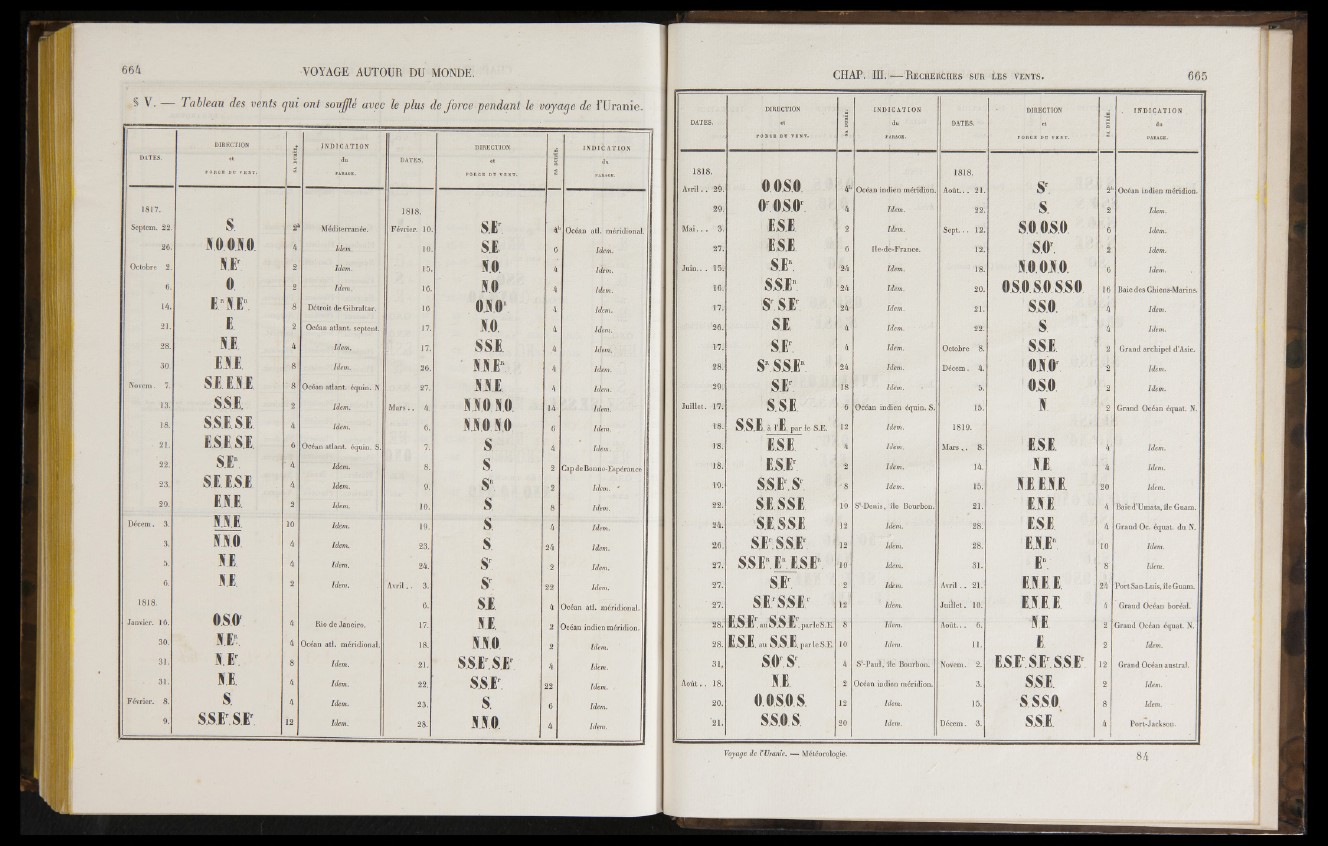 664 VOYAGE AUTOUR DU MONDE.
§ V. — Tableau des vents qui ont soufflé avec le plus de force pendant le voyage de l'Uranie.
DATES. DIRECTION et FORCE DU VENT. SA DURÉE. INDICATION du PARAGE.
1817.
Septem. 22. S. 2h Méditerranée.
26. NO.ONO. 4 Idem.
Octobre 2. N.Er 2 Idem.
6. O. 2 Idem.
14. En N.En. 8 Détroit de Gibraltar.
21. E 2 Océan atlant. septent.
28. N.E. 4 Idem.
30. E.N.E. 8 Idem.
Novem. 7. S.E. E.N.E. 8 Océan atlant. équin. N
13. S.S.E. 2 Idem.
18. S.S.E. S.E. 4 Idem.
21. E.S.E. S.E. 6 Océan atlant. équin. S.
22. S.En. 4 Idem.
23. S.E. E.S.E. 4 Idem.
29. E.N.E. 2 Idem.
Décem. 3. N.N.E. 10 Idem.
3. N.N.O. 4 Idem.
5. N.E. 4 Idem.
6. N.E. 2 Idem.
1818.
Janvier. 16. O.S.Or 4 Rio de Janeiro.
30. N.En. 4 Océan atl. méridional.
31. N.Er. 8 Idem.
31. N.E. 4 Idem.
Février. 8. S. 4 Idem.
9. S.S.Er. S.Er. 12 Idem.
DATES. DIRECTION et FORCE DU VENT. SA DURÉE. INDICATION du PARAGE.
1818.
Février. 10. S.Er 4h Océan atl. méridional.
10. S.E. 6 Idem.
15. N.O. 4 Idem.
16. N.O 4 Idem.
16 O.N.O 4 Idem.
17. N.O. 4 Idem.
17. S.S.E. 4 Idem.
26. N.N.En. 4 Idem.
27. N.N.E. 4 Idem.
Mars.. 4. N.N.O. N.O. 14 Idem.
6. N.N.O. N.O 6 Idem.
7. S 4 Idem.
8. S. 2 Cap de Bonne-Espérance
9. Sn 2 Idem.
10. S 8 Idem.
19. S 4 Idem.
23. S. 24 Idem.
24. Sr 2 Idem.
Avril.. 3. Sr 22 Idem.
6. S.E 4 Océan atl. méridional.
17. N.E. 2 Océan indien méridion.
18. N.N.O. 2 Idem.
21. S.S.Er. S.Er 4 Idem.
22. S.S.Er. 22 Idem.
23. S. 6 Idem.
28. N.N.O. 4 Idem.
CHAP. III. — RECHERCHES SUR LES VENTS. 665
DATES. DIRECTION et FORCE DU VENT. SA DURÉE. INDICATION du PARAGE.
1818.
Avril.. 29. O.O.S.O. 4h Océan indien méridion.
29. Or O.S.Or. 4 Idem.
Mai... 3. E.S.E 2 Idem.
27. E.S.E 6 Ile-de-France.
Juin... 15. S.En. 24 Idem.
16. S.S.En 24 Idem.
17. Sr S.Er 24 Idem.
26. S.E 4 Idem.
17. S.Er. 4 Idem.
28. Sn. S.S.En. 24 Idem.
29. S.Er. 18 Idem.
Juillet. 17. S.S.E 6 Océan indien équin. S.
18. S.S.E à l'E. par le S.E. 12 Idem.
18. E.S.E. 4 Idem.
18. E.S.Er 2 Idem.
19. S.S.Er. Sr. 8 Idem.
22. S.E S.S.E 10 St-Denis, île Bourbon.
24. S.E S.S.E 12 Idem.
26. S.Er. S.S.Er. 12 Idem.
27. S.S.En En. E.S.En 10 Idem.
27. S.Er. 2 Idem.
27. S.Er S.S.Er 12 Idem.
28. E.S.Er. au S.S.Er. par le S.E. 8 Idem.
28. E.S.E. au S.S.E. par le S.E. 10 Idem.
31. S.Or Sr. 4 St-Paul, île Bourbon.
Août.. 18. N.E. 2 Océan indien méridion.
20. O.O.S.O.S. 12 Idem.
21. S.S.O. S. 20 Idem.
DATES. DIRECTION et FORCE DU VENT. SA DURÉE. INDICATION du PARAGE.
1818.
Août... 21. Sr 2h Océan indien méridion.
22. S. 2 Idem.
Sept... 12. S.O. O.S.O. 6 Idem.
12. S.Or. 2 Idem.
18. N.O. O.N.O. 6 Idem.
20. O.S.O. S.O S.S.O 16 Baie des Chiens-Marins.
21. S.S.O. 4 Idem.
22. S 4 Idem.
Octobre 8. S.S.E. 2 Grand archipel d'Asie.
Décem. 4. O.N.Or 2 Idem.
5. O.S.O. 2 Idem.
15. N 2 Grand Océan équat. N.
1819.
Mars.. 8. E.S.E. 4 Idem.
14. N.E. 4 Idem.
15. N.E. E.N.E. 20 Idem.
21. E.N.E 4 Baie d'Umata, île Guam.
28. E.S.E. 4 Grand Oc. équat. du N.
28. E.N.En 10 Idem.
31. En 8 Idem.
Avril.. 21. E.N.E E. 24 Port San-Luis, île Guam.
Juillet. 10. E.N.E E. 4 Grand Océan boréal.
Août... 6. N.E 2 Grand Océan équat. N.
11. E. 2 Idem.
Novem. 2. E.S.Er S.Er. S.S.Er 12 Grand Océan austral.
3. S.S.E. 2 Idem.
15. S S.S.O. 8 Idem.
Décem. 3. S.S.E. 4 Port-Jackson.
Voyage de l'Uranie. — Météorologie. 84